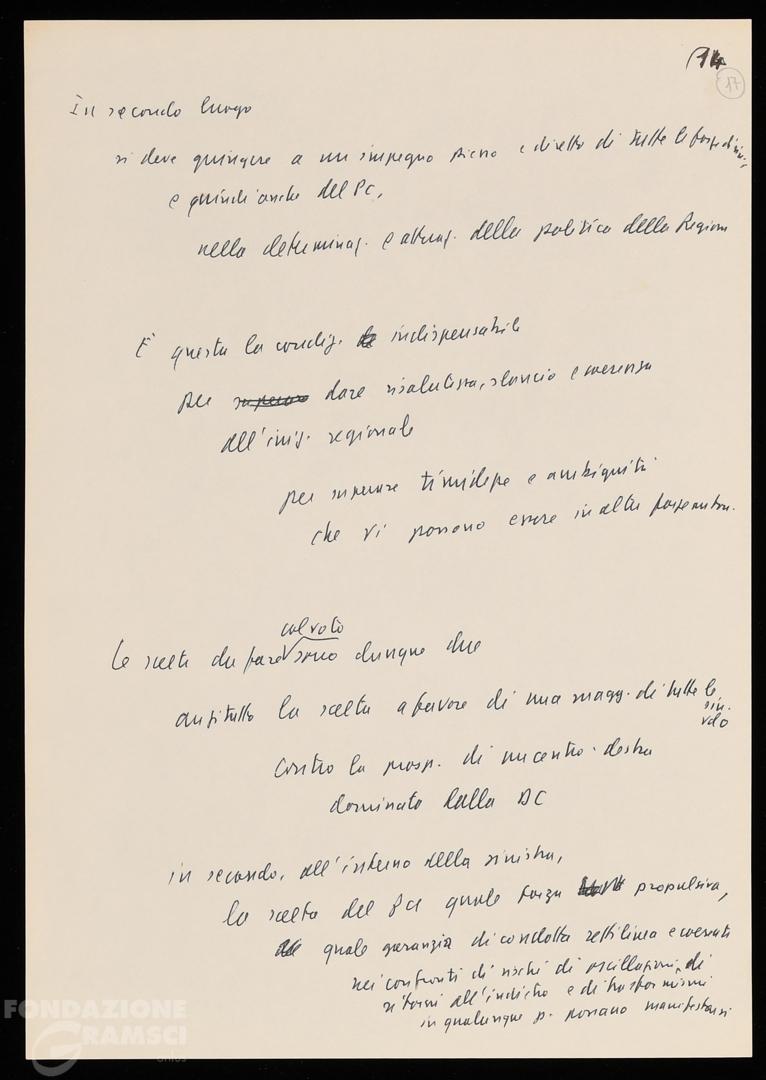 14
17
In secondo luogo
si deve giungere a un impegno pieno e diretto di tutte le forze di sin.
e quindi anche del PC,
nella determinaz. e attuaz. della politica della Regione
È questa la condiz. indispensabile
per superare dare risolutezza, slancio e coerenza
all'iniz. regionale
per superare timidezze e ambiguità
che vi possono essere in altre forze
col voto
Le scelte da fare sono dunque due
anzitutto la scelta a favore di una magg. di tutte le
sin.
contro la prosp. di un centro-destra
dominato dalla DC
in secondo, all'interno della sinistra,
la scelta del PCI quale forza propulsiva,
quale garanzia di condotta rettilinea e coerente
nei confronti di rischi di oscillazioni, di
ritorni all'indietro e di trasformismi
in qualunque p. possano manifestarsi
FONDAZIONE
GRAMSCI
onlus